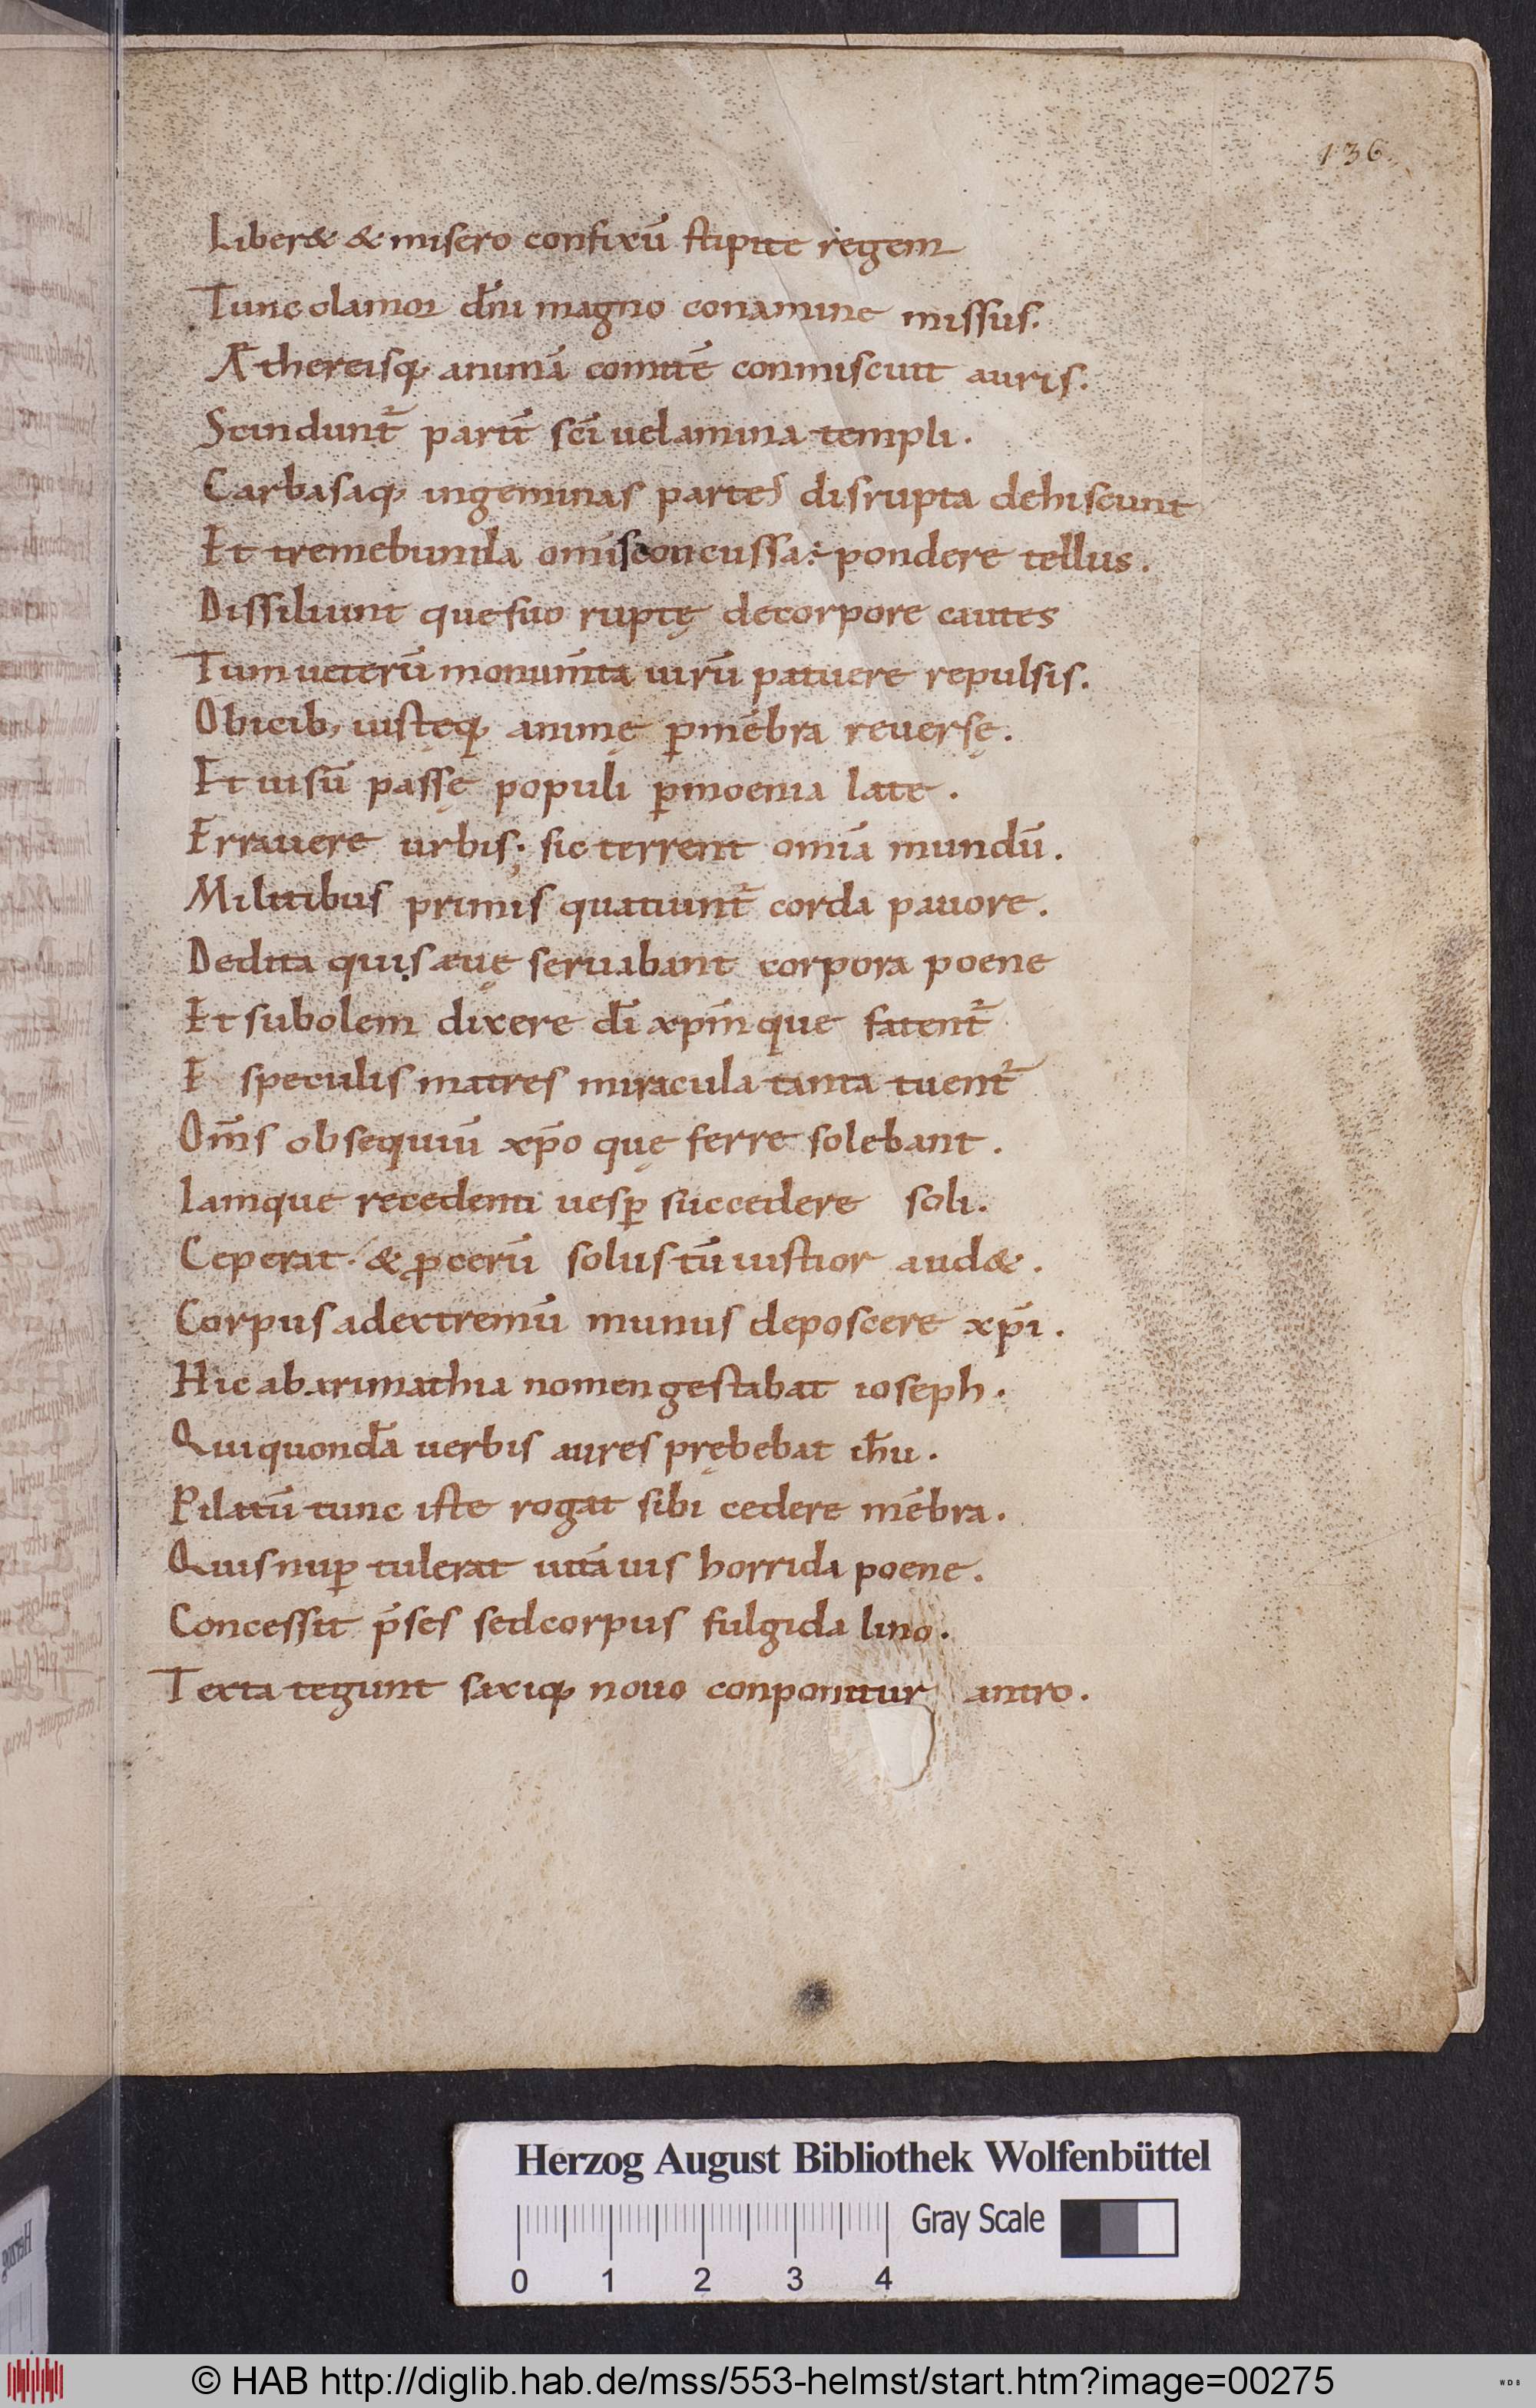 136.
Liber& & misero confixū stipite regem
Tunc clamor dn̄i magno conamine missus.
Æthereisq; animā comitē conmiscuit auris.
Scindunt᷑ parit̄ sc̄i uelamina templi.
Carbasaq; ingeminas partes disrupta dehiscunt
Et tremebunda om̄isconcussa÷pondere tellus.
Dissiliunt quesuo ruptę decorpore cautes
Tum ueterū monum̄ta uirū patuere repulsis.
Obicib; iustęq; animę ꝑmēbra reuersę.
Et uisū passę populi ꝑmoenia late.
Errauere urbis; sic terrent om̄ia mundū.
Militibus primis quatiunt᷑ corda pauore.
Dedita quiṣ æuę seruabant corpora poene
Et subolem dixere dī xp̄m que fatent᷑
E speculis matres miracula tanta tuent᷑
Om̄s obsequiū xp̄o quę ferre solebant.
Iamque recedenti uesꝑ succedere soli.
Ceperat. & ꝓcerū solus tū iustior aud&.
Corpus adextremū munus deposcere xp̄i.
Hic abarimathia nomen gestabat ioseph.
Qui quondā uerbis aures prębebat ih̄u.
Pilatū tunc iste rogat sibi cedere mēbra.
Quis nuꝑ tulerat uitā uis horrida poene.
Concessit p̄ses sedcorpus fulgida lino.
Texta tegunt saxiq; nouo conponitur antro.
Herzog August Bibliothek Wolfenbüttel
0 1 2 3 4 Gray Scale
© HAB http://diglib.hab.de/mss/553-helmst/start.htm?image=00275
WDB